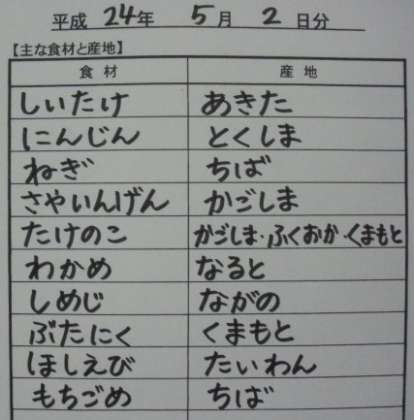 平成 24年 5月 2日分
【主な食材と産地】
食材 産地
しいたけ あきた
にんじん とくしま
ねぎ ちば
さやいんげん かごしま
たけのこ かごしま・ふくおか・くまもと
わかめ なると
しめじ ながの
ぶたにく くまもと
ほしえび たいわん
もちごめ ちば